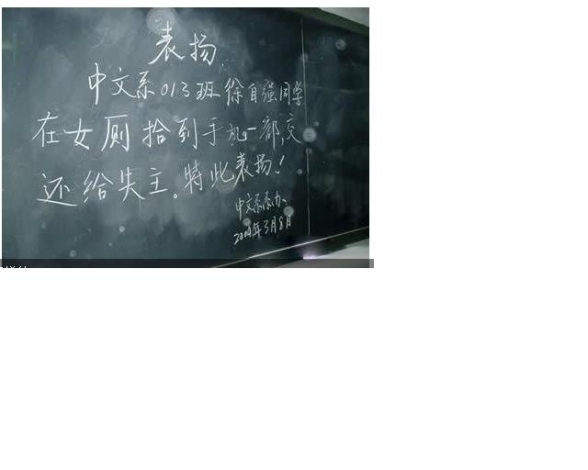 表扬
中文系013班徐自强同学
在女厕拾到手机一部,交
还给失主。特此表扬!
中文系系办
2004年3月8日